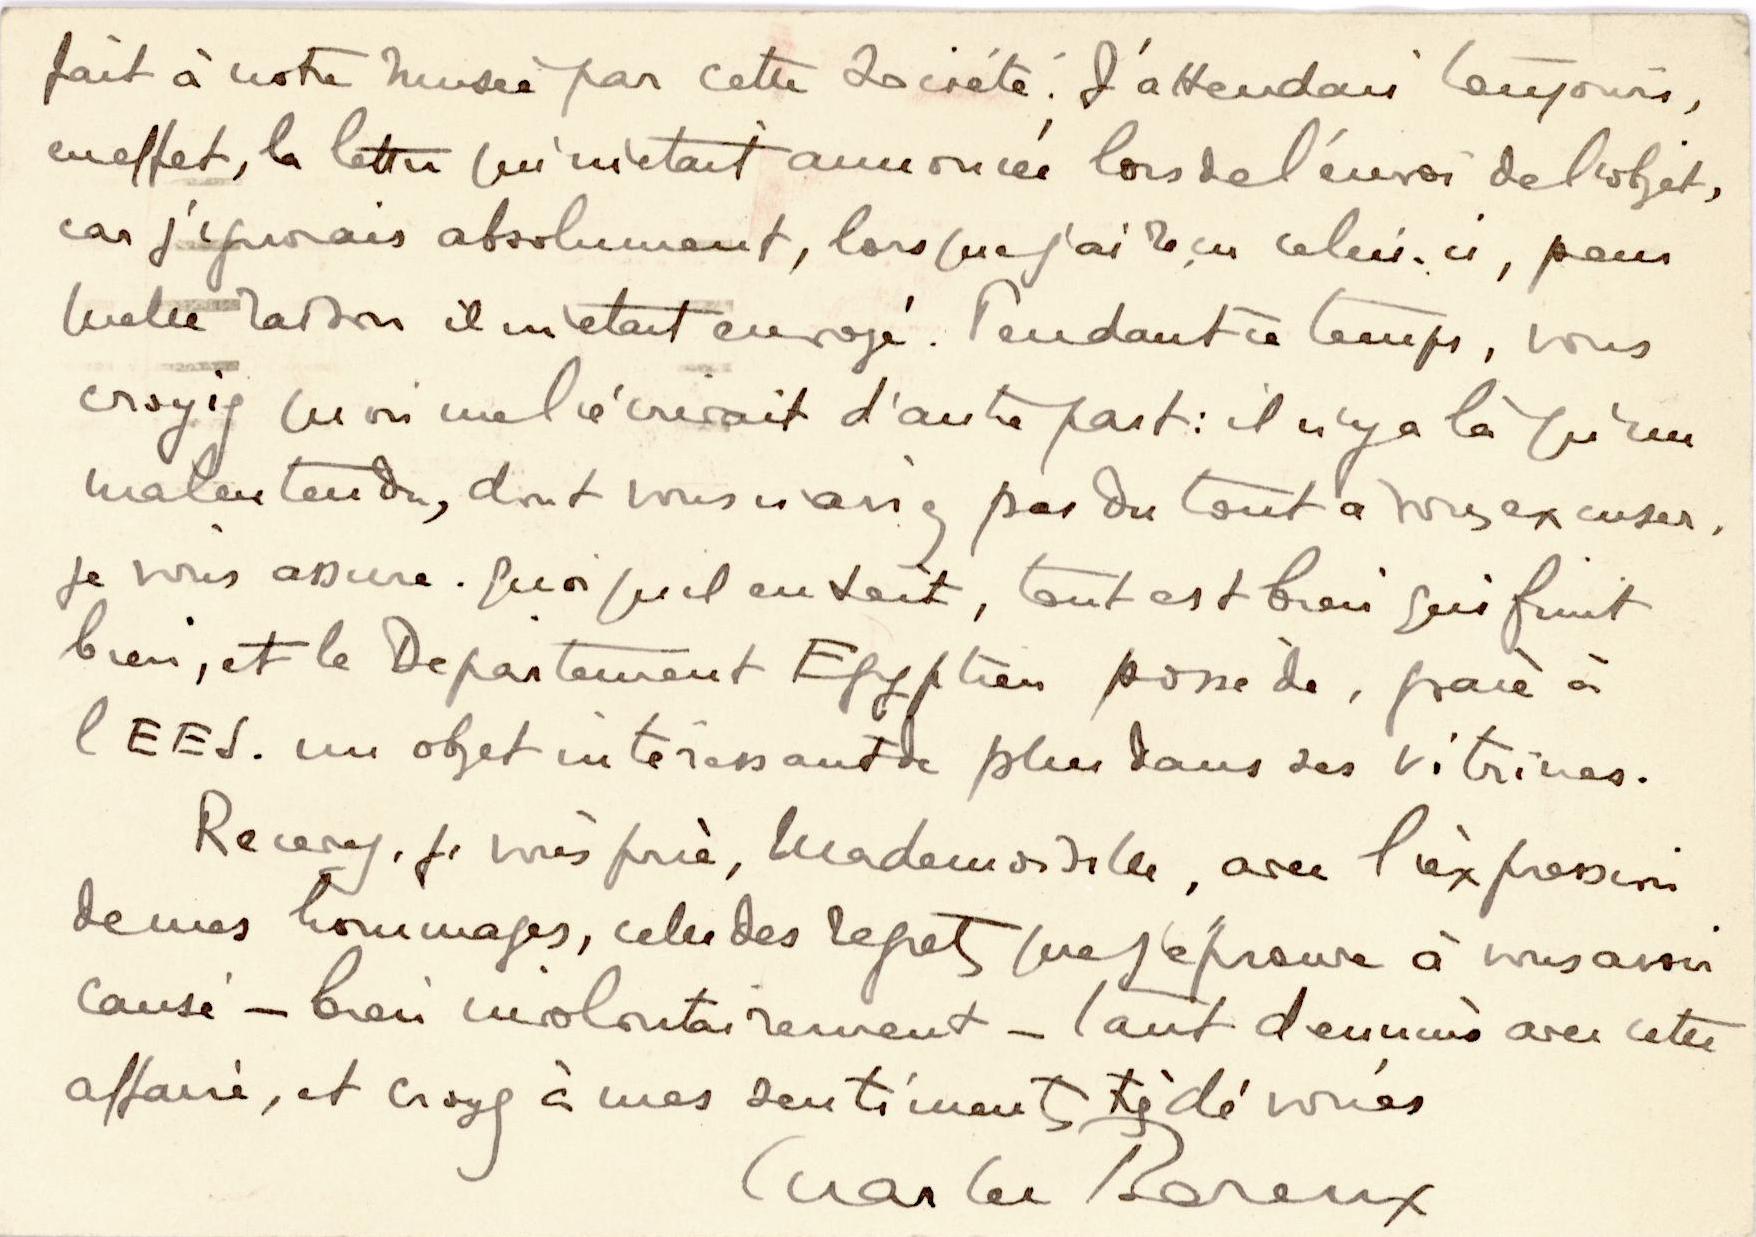 fait à notre Musée par cette Société. J'attendais toujours,
en effet, la lettre qui m'était annoncée lors de l'envoi de l'objet,
car j'ignorais absolument, lorsque j'ai reçu celui-ci, pour
quelle raison il m'était envoyé. Pendant ce temps, vous
croyiez qu'on me l'écrivait d'autre part : il n'y a là qu'un
malentendu, dont vous n'aviez pas du tout à vous excuser,
je vous assure. Quoi qu'il en soit, tout est bien qui finit
bien, et le Département Egyptien possède, grâce à
l'EES. un objet intéressant de plus dans ses vitrines.
Recevez, je vous prie, Mademoiselle, avec l'expression
de mes hommages, celle des regrets que j'éprouve à vous avoir
causé – bien involontairement – tant d'ennuis avec cette
affaire, et croyez à mes sentiments très dévoués
Charles Boreux